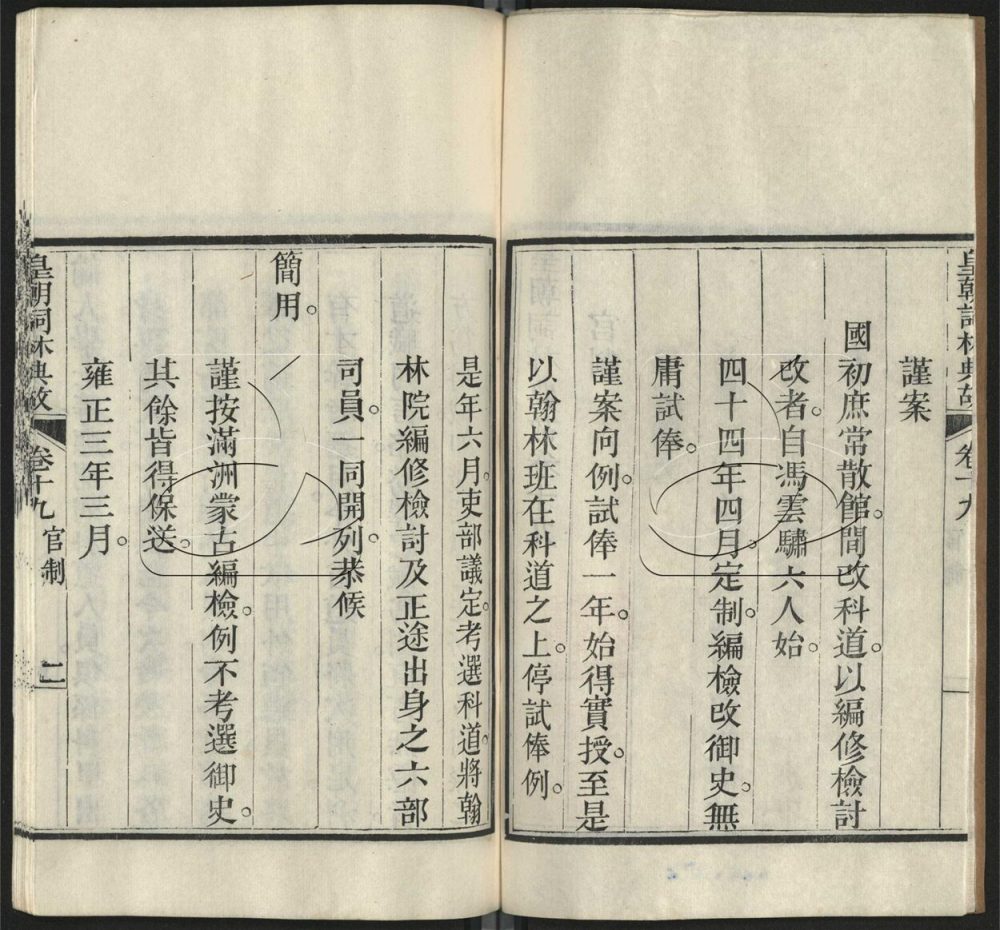 皇朝詞林典故 卷十九
謹案
國初庶常散館。間改科道。以編修檢討
改者。自馮雲驌六人始。
四十四年四月。定制。編檢改御史。無
庸試俸。
謹案向例。試俸一年。始得實授。至是
以翰林班在科道之上。停試俸例。
是年六月。吏部議定。考選科道。將翰
林院編修檢討及正途出身之六部
司員。一同開列。恭候
簡用。
謹按滿洲蒙古編檢。例不考選御史。
其餘皆得保送。
雍正三年三月。
皇朝詞林典故 卷十九 官制 二